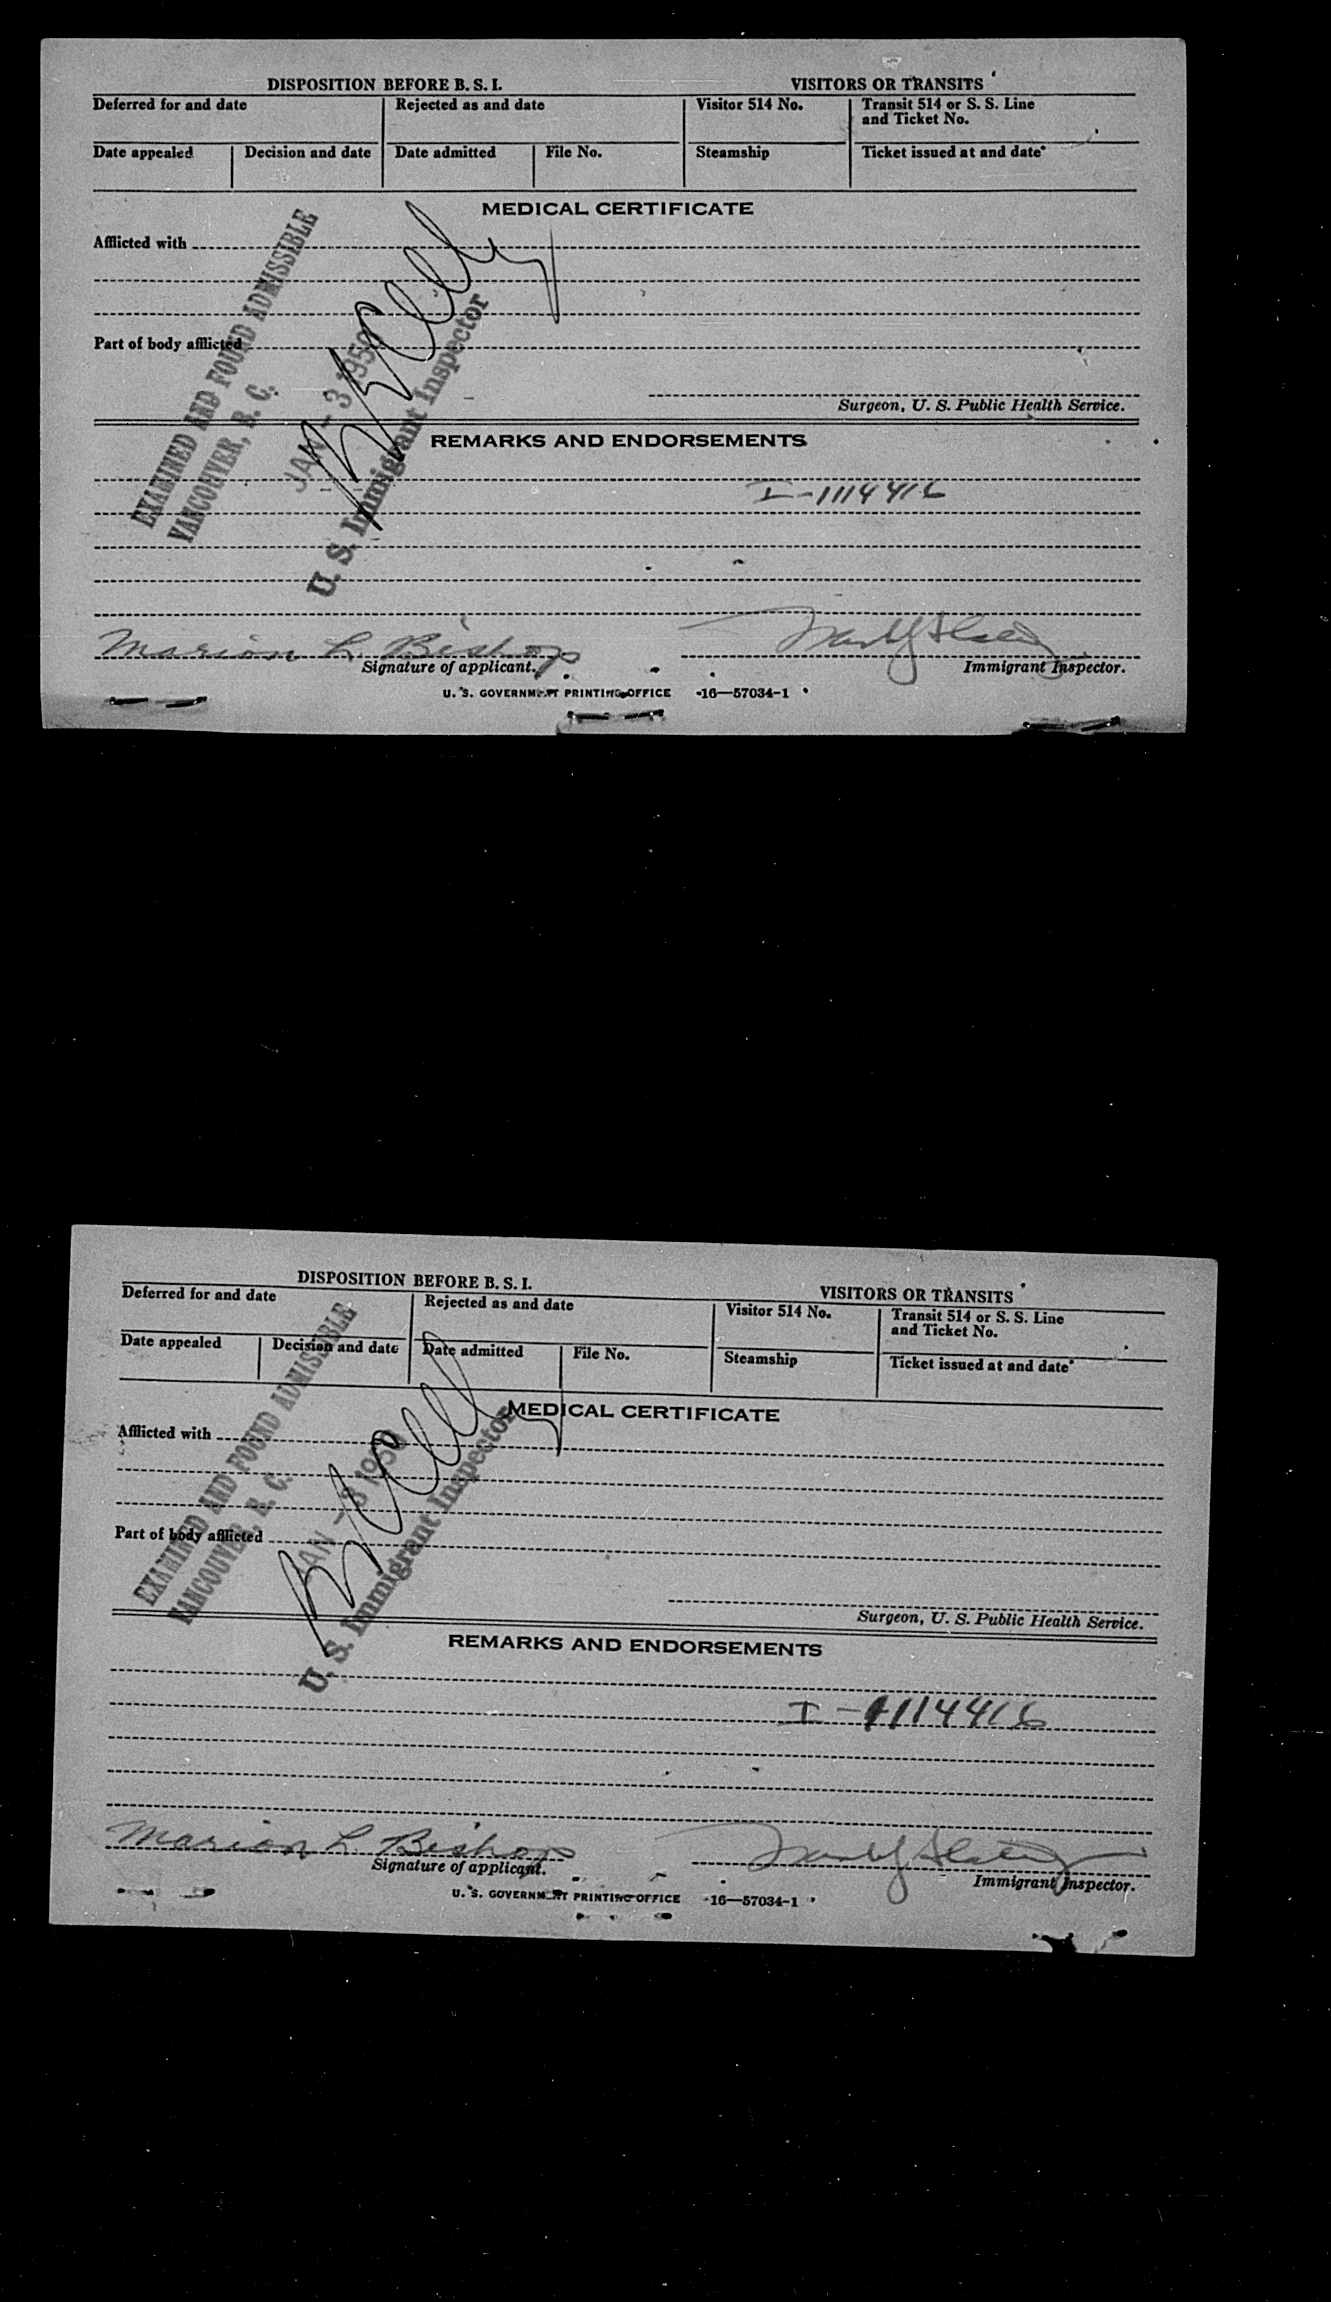 DISPOSITION BEFORE B. S. I.
VISITORS OR TRANSITS
Deferred for and date
Rejected as and date
Visitor 514 No.
Transit 514 or S. S. Line
and Ticket No.
Date appealed
Decision and date
Date admitted
File No.
Steamship
Ticket issued at and date
MEDICAL CERTIFICATE
Afflicted with
Part of body afflicted
EXAMINED AND FOUND ADMISSIBLE
VANCOUVER, B. C.
JAN - 3 1950
U. S. Immigrant Inspector
Surgeon, U. S. Public Health Service.
REMARKS AND ENDORSEMENTS
I-1114416
Marion L. Bishop
Signature of applicant.
Immigrant Inspector.
U. S. GOVERNMENT PRINTING OFFICE 16—57034-1
DISPOSITION BEFORE B. S. I.
VISITORS OR TRANSITS
Deferred for and date
Rejected as and date
Visitor 514 No.
Transit 514 or S. S. Line
and Ticket No.
Date appealed
Decision and date
Date admitted
File No.
Steamship
Ticket issued at and date
MEDICAL CERTIFICATE
Afflicted with
Part of body afflicted
EXAMINED AND FOUND ADMISSIBLE
VANCOUVER, B. C.
JAN - 3 1950
U. S. Immigrant Inspector
Surgeon, U. S. Public Health Service.
REMARKS AND ENDORSEMENTS
I-1114416
Marion L. Bishop
Signature of applicant.
Immigrant Inspector.
U. S. GOVERNMENT PRINTING OFFICE 16—57034-1